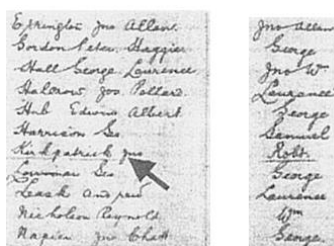 Errington Jno Allan.
Gordon Peter. Haggier
Hall George Laurence
Halcrow Jos. Pollard.
Edwin Albert.
Harrison Geo
Kirkpatrick Jno
Geo
Leask Andrew
Nicholson Reynold
Napier Jno Chatt
Jno Allan
George
Jno Wm
Laurence
George
Samuel
Robt.
George
Laurence
Wm
George